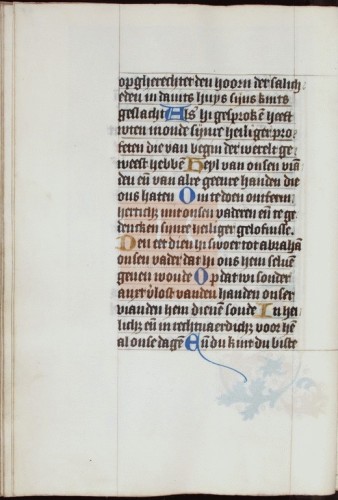 opgherechter den hoorn der salich
eden in dauits huys sijns kints
geslacht Als hi gesprokē heeft
wten monde sijnre heiliger pro
feten die van begin der werelt ge
weest hebbē Heyl van onsen vian
den eñ van alre geenre handen die
ons haten Om te doen ontferm
hertich͛ mit onsen vaderen eñ te ge
dencken sijnre heiliger gelofnisse
Den eet dien hi swoer tot abrahā
onsen vader dat hi ons hem seluē
geuen woude Op dat wi sonder
anxt v͛lost vanden handen onser
vianden hem dienē soude In hei
lich͛ eñ in rechtuaerdich͛ voor hē
al onse dagē Eñ du kint du biste